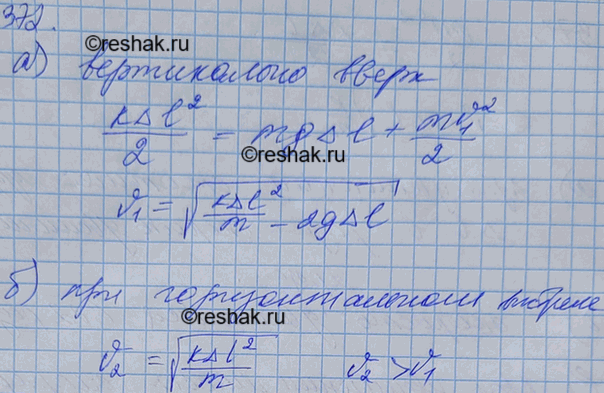 372.
©reshak.ru
а) вертикально вверх
kΔl²/2 = mgΔl + mv₁²/2
©reshak.ru
v₁ = √(kΔl²/m - 2gΔl)
б) при горизонтальном выстреле
©reshak.ru
v₂ = √(kΔl²/m) v₂ > v₁